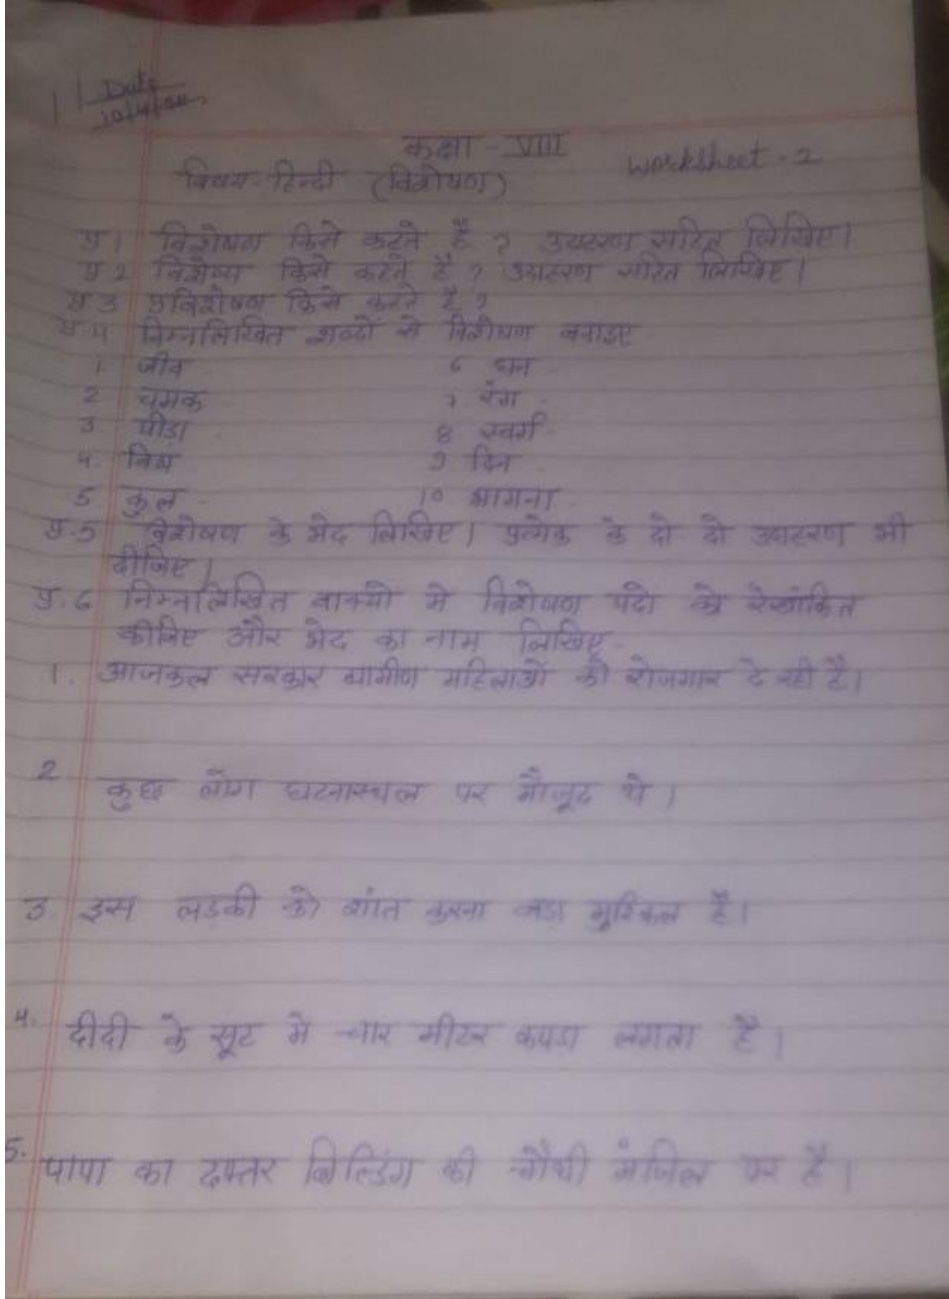 Date
10/4/20
कक्षा - VIII
विषय - हिन्दी (विशेषण) Worksheet - 2
प्र 1 विशेषण किसे कहते है ? उदाहरण सहित लिखिए।
प्र 2 विशेष्य किसे कहते है ? उदाहरण सहित लिखिए।
प्र 3 प्रविशेषण किसे कहते है ?
प्र 4 निम्नलिखित शब्दों से विशेषण बनाइए
1 जीव 6 धन
2 चमक 7 रंग
3. पीडा 8 स्वर्ग
4. विष 9. दिन
5 कुल 10 भागना
प्र.5 विशेषण के भेद लिखिए। प्रत्येक के दो-दो उदाहरण भी
दीजिए।
प्र.6 निम्नलिखित वाक्यो मे विशेषण पदो को रेखांकित
कीजिए और भेद का नाम लिखिए -
1. आजकल सरकार ग्रामीण महिलाओं को रोजगार दे रही है।
2 कुछ लोग घटनास्थल पर मौजूद थे।
3. इस लडकी को शांत करना बडा मुश्किल है।
4. दीदी के सूट मे चार मीटर कपडा लगता है।
5. पापा का दफ्तर बिल्डिंग की चौथी मंजिल पर है।